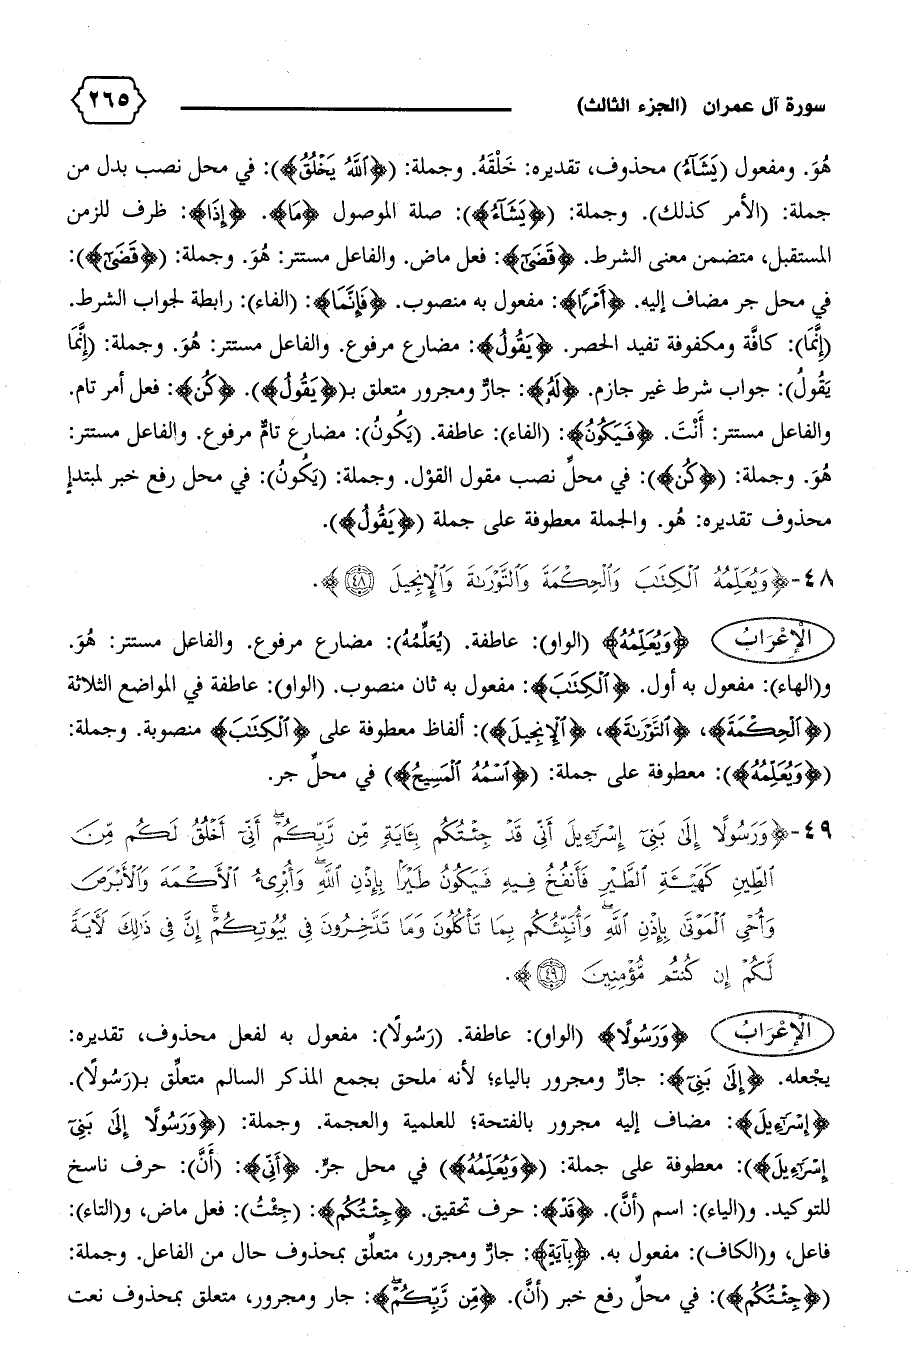 سورة آل عمران (الجزء الثالث) ٢٦٥
هُوَ. ومفعول (يَشَآءُ) محذوف، تقديره: خَلْقَهُ. وجملة: (﴿اللَّهُ يَخْلُقُ﴾): في محل نصب بدل من
جملة: (الأمر كذلك). وجملة: (﴿يَشَآءُ﴾): صلة الموصول ﴿مَا﴾. ﴿إِذَا﴾: ظرف للزمن
المستقبل، متضمن معنى الشرط. ﴿قَضَىٰٓ﴾: فعل ماض. والفاعل مستتر: هُوَ. وجملة: (﴿قَضَىٰٓ﴾):
في محل جر مضاف إليه. ﴿أَمْرًا﴾: مفعول به منصوب. ﴿فَإِنَّمَا﴾: (الفاء): رابطة لجواب الشرط.
(إِنَّمَا): كافَّة ومكفوفة تفيد الحصر. ﴿يَقُولُ﴾: مضارع مرفوع. والفاعل مستتر: هُوَ. وجملة: (إِنَّمَا
يَقُولُ): جواب شرط غير جازم. ﴿لَهُۥ﴾: جارٌّ ومجرور متعلق بـ(﴿يَقُولُ﴾). ﴿كُن﴾: فعل أمر تام.
والفاعل مستتر: أَنْتَ. ﴿فَيَكُونُ﴾: (الفاء): عاطفة. (يَكُونُ): مضارع تامٌّ مرفوع. والفاعل مستتر:
هُوَ. وجملة: (﴿كُن﴾): في محلِّ نصب مقول القوْل. وجملة: (يَكُونُ): في محل رفع خبر لمبتدإ
محذوف تقديره: هُو. والجملة معطوفة على جملة (﴿يَقُولُ﴾).
٤٨-﴿وَيُعَلِّمُهُ ٱلْكِتَٰبَ وَٱلْحِكْمَةَ وَٱلتَّوْرَىٰةَ وَٱلْإِنجِيلَ ٤٨﴾.
الإِعْرَابُ ﴿وَيُعَلِّمُهُ﴾ (الواو): عاطفة. (يُعَلِّمُهُ): مضارع مرفوع. والفاعل مستتر: هُوَ.
و(الهاء): مفعول به أول. ﴿ٱلْكِتَٰبَ﴾: مفعول به ثان منصوب. (الواو): عاطفة في المواضع الثلاثة
(﴿ٱلْحِكْمَةَ﴾، ﴿ٱلتَّوْرَىٰةَ﴾، ﴿ٱلْإِنجِيلَ﴾): ألفاظ معطوفة على ﴿ٱلْكِتَٰبَ﴾ منصوبة. وجملة:
(﴿وَيُعَلِّمُهُ﴾): معطوفة على جملة: (﴿ٱسْمُهُ ٱلْمَسِيحُ﴾) في محلِّ جر.
٤٩-﴿وَرَسُولًا إِلَىٰ بَنِىٓ إِسْرَٰٓءِيلَ أَنِّى قَدْ جِئْتُكُم بِـَٔايَةٍ مِّن رَّبِّكُمْ ۖ أَنِّىٓ أَخْلُقُ لَكُم مِّنَ
ٱلطِّينِ كَهَيْـَٔةِ ٱلطَّيْرِ فَأَنفُخُ فِيهِ فَيَكُونُ طَيْرًۢا بِإِذْنِ ٱللَّهِ ۖ وَأُبْرِئُ ٱلْأَكْمَهَ وَٱلْأَبْرَصَ
وَأُحْىِ ٱلْمَوْتَىٰ بِإِذْنِ ٱللَّهِ ۖ وَأُنَبِّئُكُم بِمَا تَأْكُلُونَ وَمَا تَدَّخِرُونَ فِى بُيُوتِكُمْ ۚ إِنَّ فِى ذَٰلِكَ لَـَٔايَةً
لَّكُمْ إِن كُنتُم مُّؤْمِنِينَ ٤٩﴾.
الإِعْرَابُ ﴿وَرَسُولًا﴾ (الواو): عاطفة. (رَسُولًا): مفعول به لفعل محذوف، تقديره:
يجعله. ﴿إِلَىٰ بَنِىٓ﴾: جارٌّ ومجرور بالياء؛ لأنه ملحق بجمع المذكر السالم متعلِّق بـ(رَسُولًا).
﴿إِسْرَٰٓءِيلَ﴾: مضاف إليه مجرور بالفتحة؛ للعلمية والعجمة. وجملة: (﴿وَرَسُولًا إِلَىٰ بَنِىٓ
إِسْرَٰٓءِيلَ﴾): معطوفة على جملة: (﴿وَيُعَلِّمُهُ﴾) في محل جرٍّ. ﴿أَنِّى﴾: (أَنَّ): حرف ناسخ
للتوكيد. و(الياء): اسم (أَنَّ). ﴿قَدْ﴾: حرف تحقيق. ﴿جِئْتُكُم﴾: (جِئْتُ): فعل ماض، و(التاء):
فاعل، و(الكاف): مفعول به. ﴿بِآيَةٍ﴾: جارٌّ ومجرور، متعلِّق بمحذوف حال من الفاعل. وجملة:
(﴿جِئْتُكُم﴾): في محلِّ رفع خبر (أَنَّ). ﴿مِّن رَّبِّكُمْ ۖ﴾: جار ومجرور، متعلق بمحذوف نعت